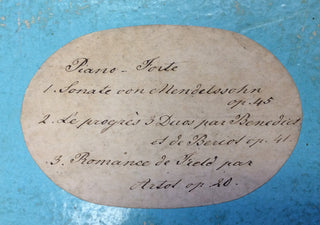 Piano-Forte
1. Sonate von Mendelssohn
op. 45
2. Le progrès 3 Duos par Benedict
et de Beriot op. 41.
3. Romance de Field par
Artot op. 20.